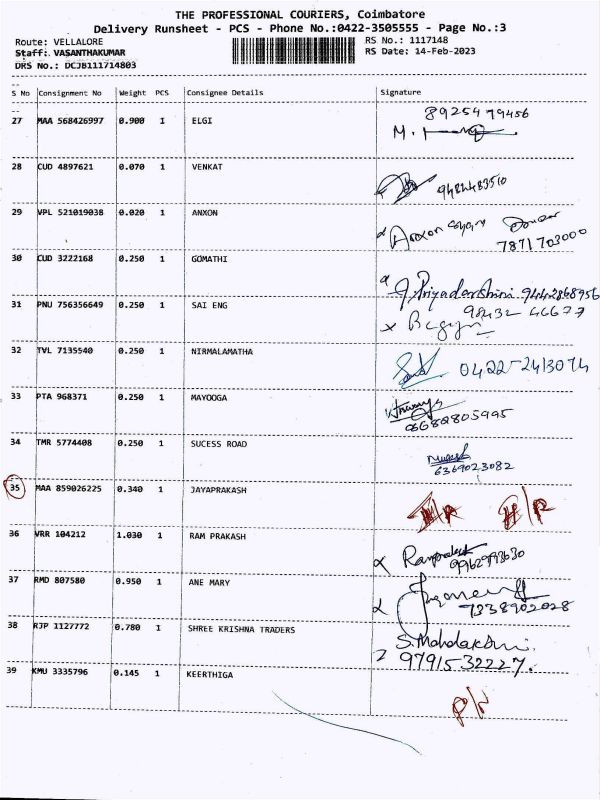 THE PROFESSIONAL COURIERS, Coimbatore
Delivery Runsheet - PCS - Phone No.:0422-3505555 - Page No.:3
Route: VELLALORE RS No.: 1117148
Staff: VASANTHAKUMAR RS Date: 14-Feb-2023
DRS No.: DCJB111714803
S No Consignment No Weight PCS Consignee Details Signature
27 MAA 568426997 0.900 1 ELGI 89254 79456
M.
28 CUD 4897621 0.070 1 VENKAT
29 VPL 521019038 0.020 1 ANXON Anxon
7871703000
30 CUD 3222168 0.250 1 GOMATHI
J. Priyadarshini. 9442868956
31 PNU 756356649 0.250 1 SAI ENG 98432 46677
32 TVL 7135540 0.250 1 NIRMALAMATHA 0422-2413074
33 PTA 968371 0.250 1 MAYOOGA
34 TMR 5774408 0.250 1 SUCESS ROAD
6369023082
35 MAA 859026225 0.340 1 JAYAPRAKASH
36 VRR 104212 1.030 1 RAM PRAKASH Ramprakash
37 RMD 807580 0.950 1 ANE MARY
7338902028
38 RJP 1127772 0.780 1 SHREE KRISHNA TRADERS
9791532227.
39 KMU 3335796 0.145 1 KEERTHIGA
P/N